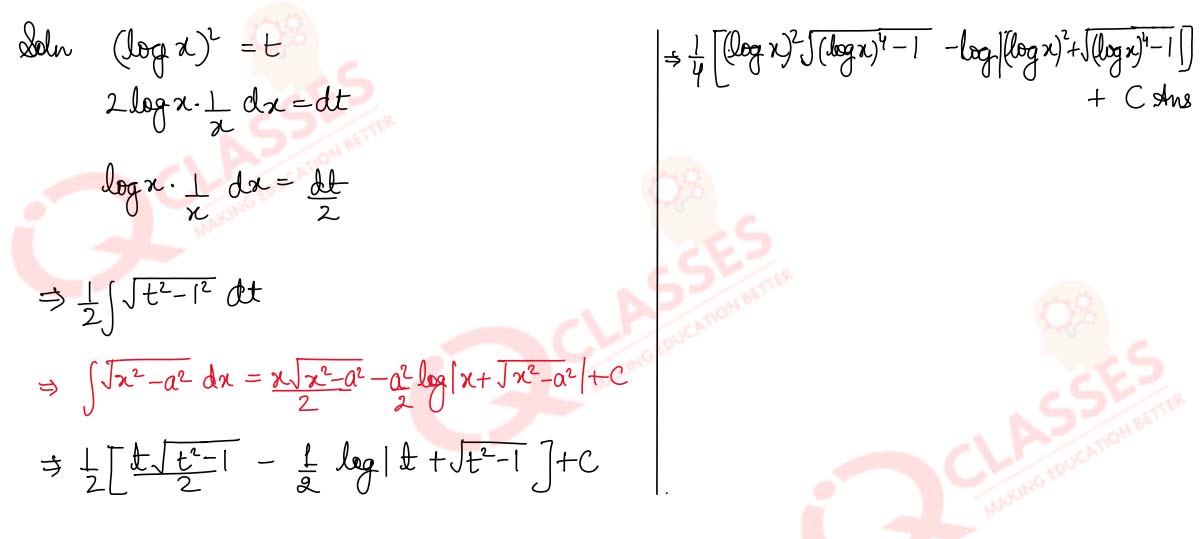 Soln (log x)² = t
2 log x · 1/x dx = dt
log x · 1/x dx = dt/2
⇒ 1/2 ∫ √(t² – 1²) dt
⇒ ∫ √(x² – a²) dx = x√(x² – a²)/2 – a²/2 log|x + √(x² – a²)| + C
⇒ 1/2 [ t√(t² – 1)/2 – 1/2 log| t + √(t² – 1) ] + C
⇒ 1/4 [(log x)² √((log x)⁴ – 1) – log|(log x)² + √((log x)⁴ – 1)|]
+ C Ans
CLASSES
MAKING EDUCATION BETTER
CLASSES
MAKING EDUCATION BETTER
CLASSES
MAKING EDUCATION BETTER